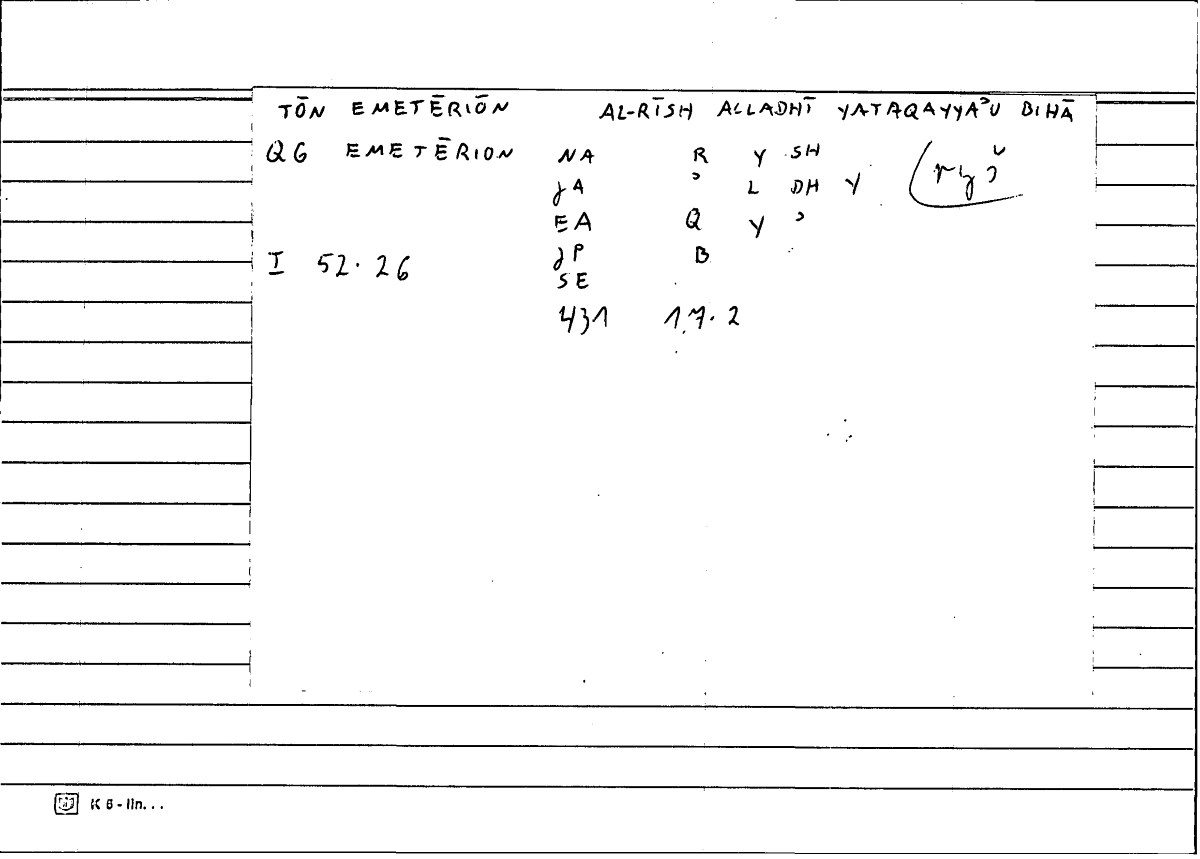 TŌN EMETĒRIŌN AL-RĪSH ALLADHĪ YATAQAYYAʾU BIHĀ
QG EMETĒRION NA R Y SH
JA ʾ L DH Y
EA Q Y ʾ
I 52.26 JP B
SE
431 17.2
K 6 - lin...